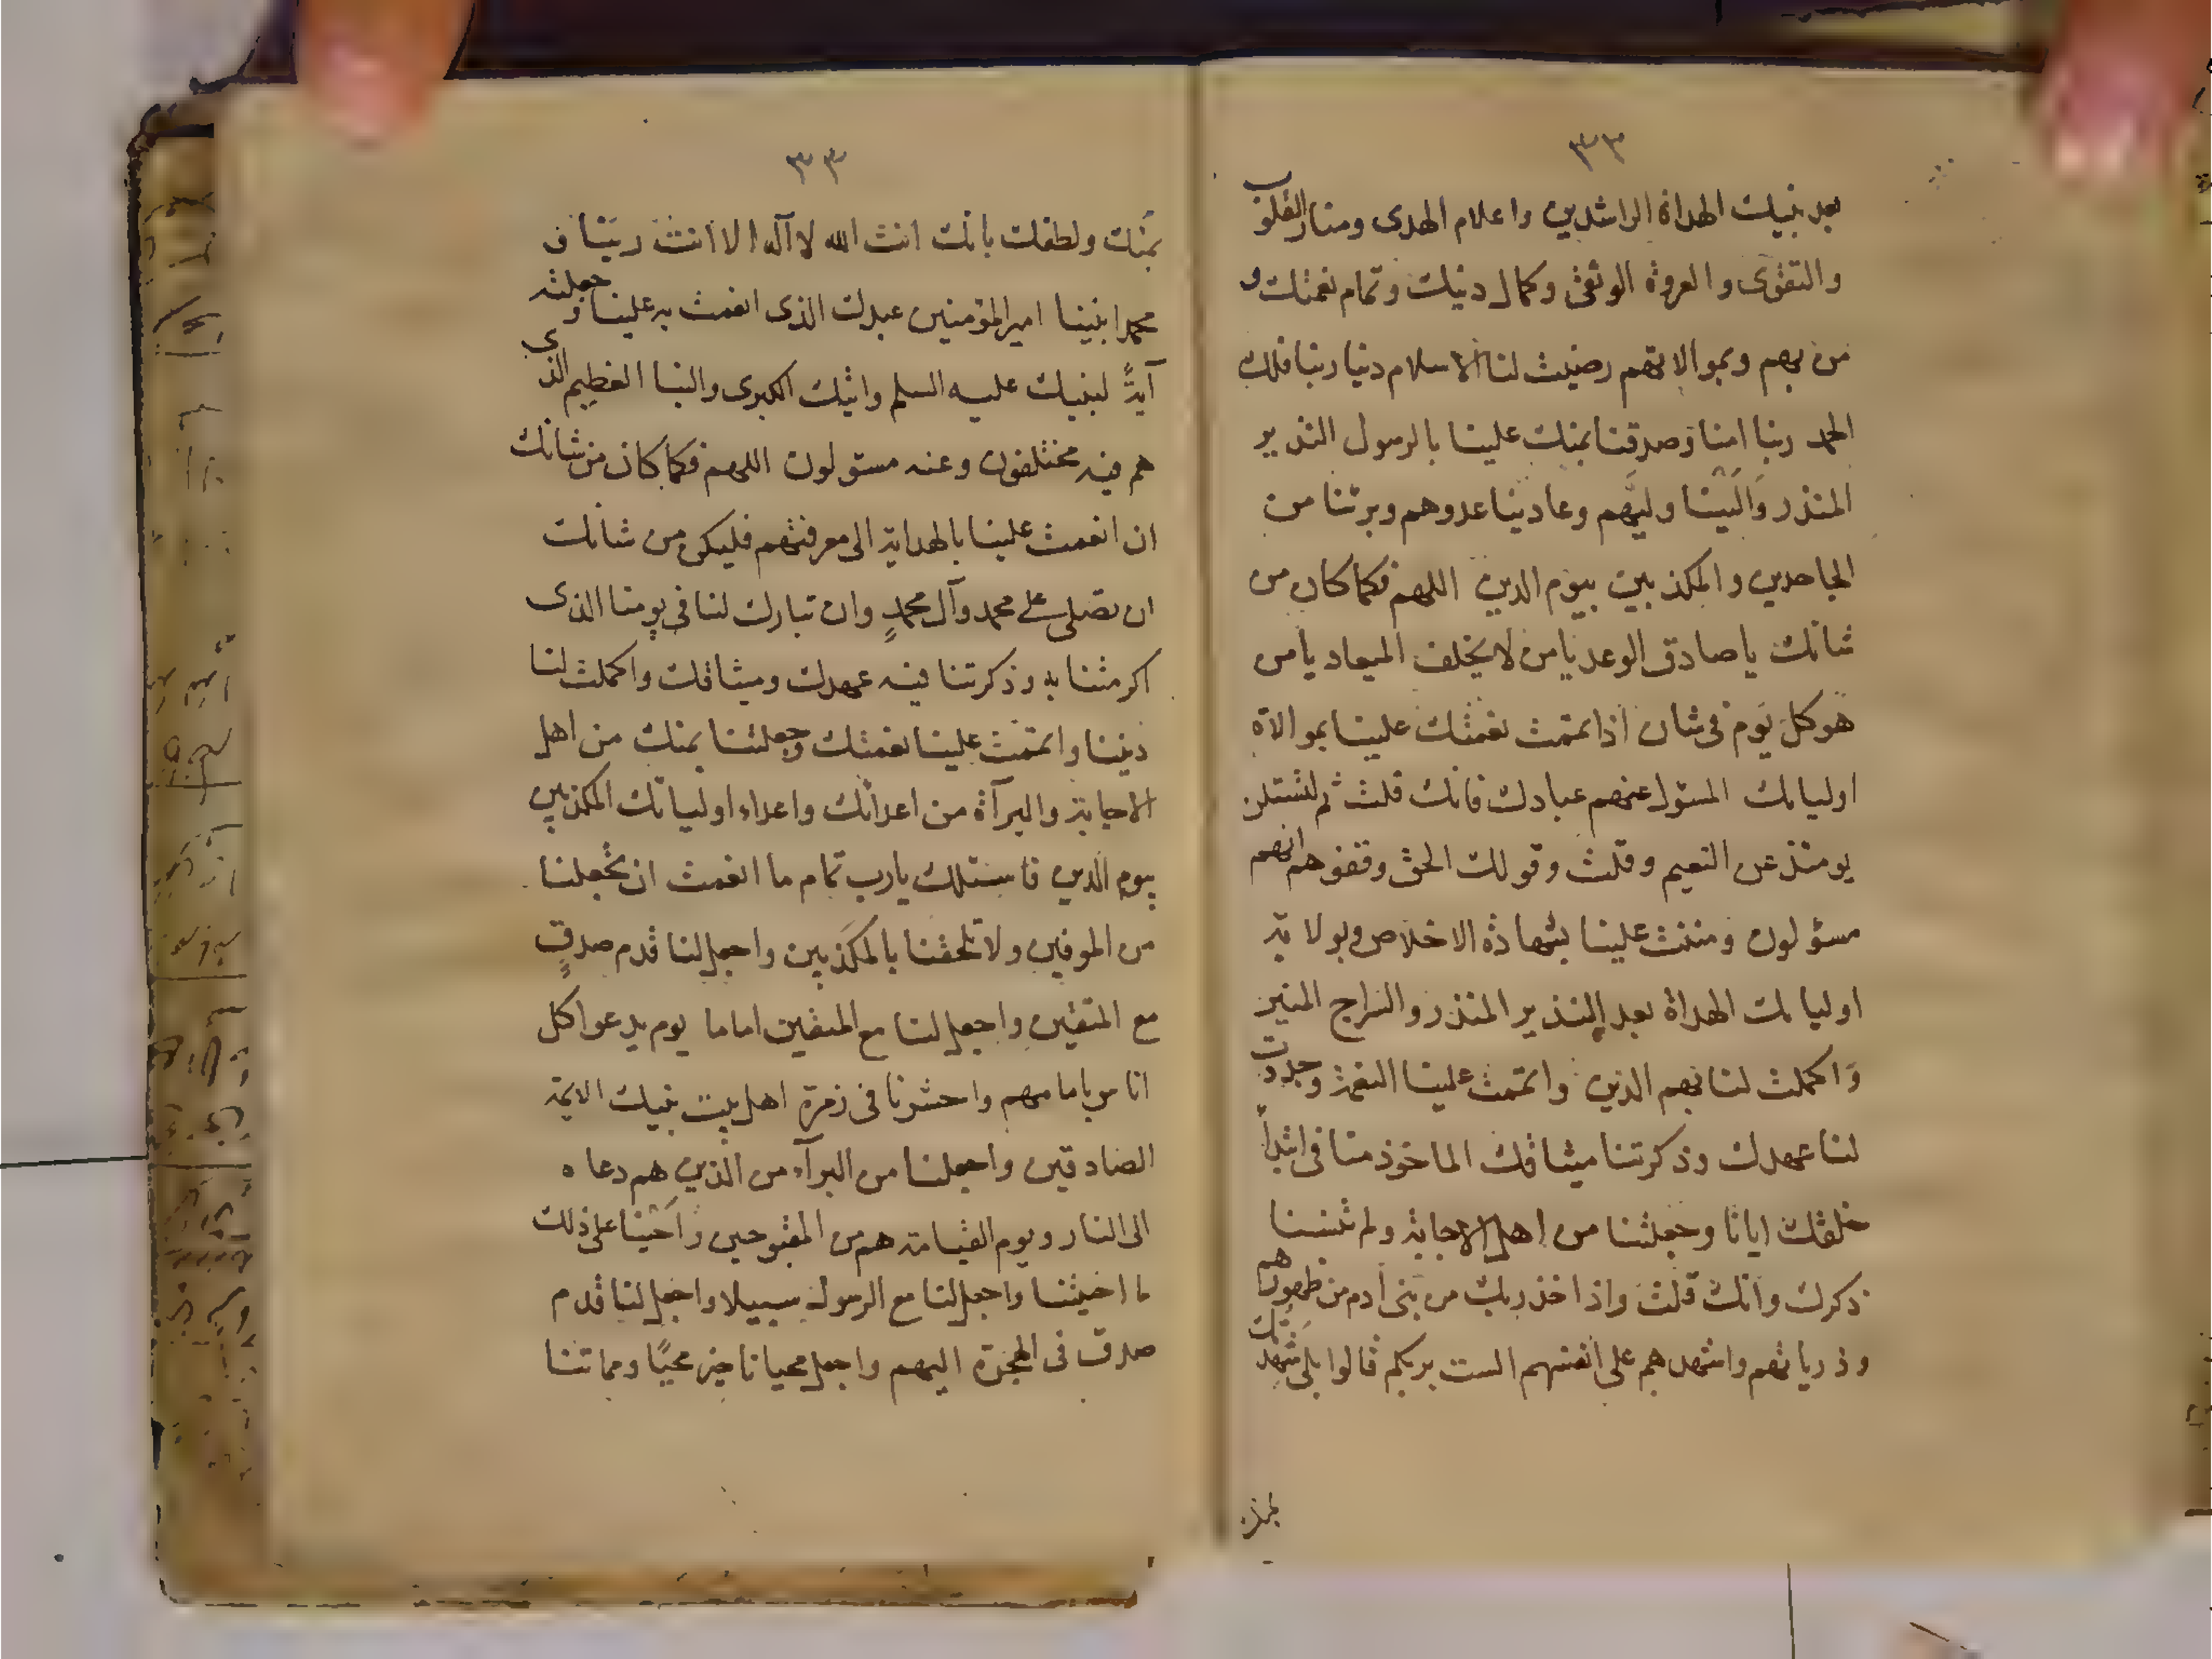 ٣٣
بعد نبيك الهداة الراشدين واعلام الهدى ومنار القلوب
والتقوى والعروة الوثقى وكمال دينك وتمام نعمتك و
من بهم وبموالاتهم رضيت لنا الاسلام دينا ربنا فلك
الحمد ربنا امنا وصدقنا بمنك علينا بالرسول النذير
المنذر وَالَيْنا وليَّهم وعادينا عدوهم وبرئنا من
الجاحدين والمكذبين بيوم الدين اللهم فكما كان من
شانك يا صادق الوعد يا من لا يخلف الميعاد يا من
هو كل يوم في شان اذ اتممت نعمتك علينا بموالاة
اوليائك المسئول عنهم عبادك فانك قلت ثم لتسئلن
يومئذ عن النعيم وقلت وقولك الحق وقفوهم انهم
مسؤلون ومننت علينا بشهادة الاخلاص وبولاية
اوليائك الهداة بعد النذير المنذر والسراج المنير
وَاكملت لنا بهم الدين واتممت علينا النعمة وجددت
لنا عهدك وذكرتنا ميثاقك الماخوذ منا في ابتدأ
خلقك ايانا وجعلتنا من اهل الاجابة ولم تنسنا
ذكرك وانك قلت واذ اخذ ربك من بنى آدم من ظهورهم
وذرياتهم واشهدهم على انفسهم الست بربكم قالوا بلى شهدنا
بمنك
٣٣
بمَنك ولطفك بانك انت الله لا آله الا انت ربنا و
محمدا نبينا امير المؤمنين عبدك الذى انعمت به علينا وجعلته
آيةً لنبيك عليه السلم وايتك الكبرى والنبا العظيم الذى
هم فيه مختلفون وعنه مسئولون اللهم فكما كان من شانك
ان انعمت علينا بالهداية الى معرفتهم فليكن من شانك
ان تصلى على محمد وآل محمدٍ وان تبارك لنا في يومنا الذى
اكرمتنا به وذكرتنا فيه عهدك وميثاقك واكملت لنا
ديننا واتممت علينا نعمتك وجعلتنا بمنك من اهل
الاجابة والبرآة من اعدائك واعداء اوليائك المكذبين
بيوم الدين فاسئلك يا رب تمام ما انعمت ان تجعلنا
من الموفين ولا تلحقنا بالمكَذبين واجعل لنا قدم صدقٍ
مع المتقين واجعل لنا مع المتقين اماما يوم يدعوا كل
اناس بامامهم واحشرنا فى زمرة اهل بيت نبيك الائمة
الصادقين واجعلنا من البرآء من الذين هم دعاة
الى النار ويوم القيامة هم من المقبوحين وأَحْينا على ذلك
ما احييتنا واجعل لنا مع الرسول سبيلا واجعل لنا قدم
صدق فى الهجرة اليهم واجعل محيانا خير محيًا ومماتنا